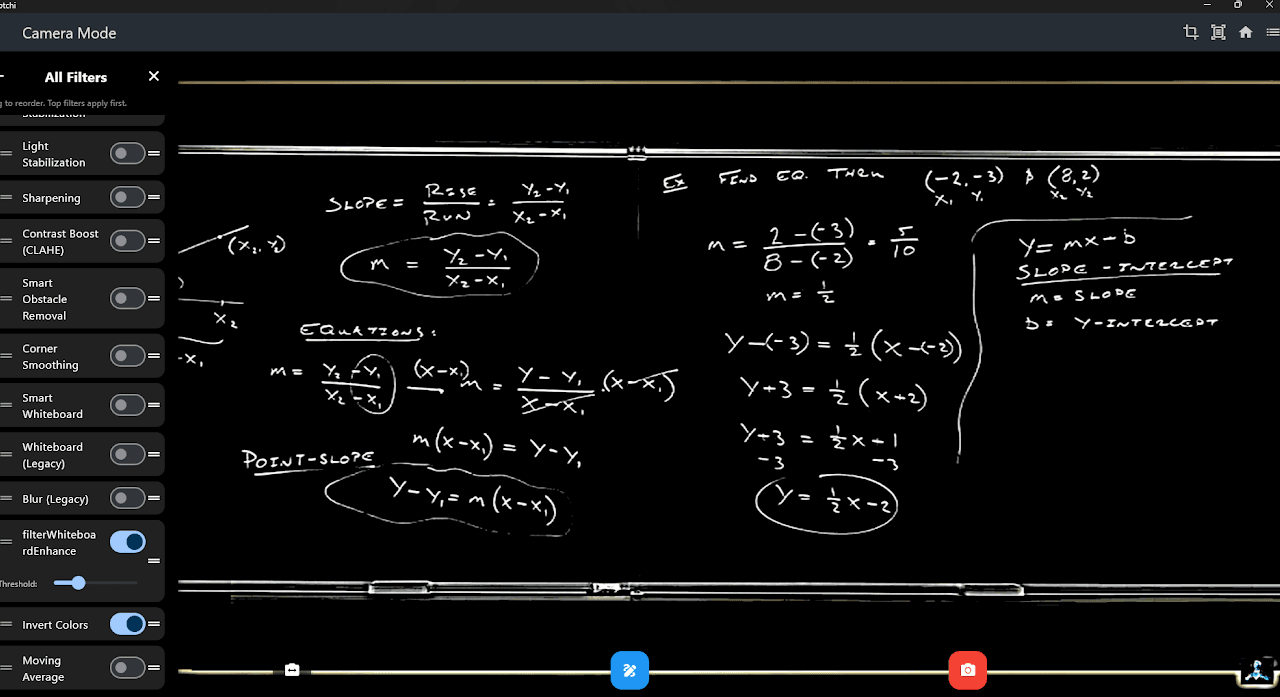 otchi
Camera Mode
All Filters
g to reorder. Top filters apply first.
Stabilization
Light Stabilization
Sharpening
Contrast Boost (CLAHE)
Smart Obstacle Removal
Corner Smoothing
Smart Whiteboard
Whiteboard (Legacy)
Blur (Legacy)
filterWhiteboardEnhance
Threshold:
Invert Colors
Moving Average
(x₂, y₂)
x₂
-x₁
SLOPE = RISE/RUN = (Y₂-Y₁)/(X₂-X₁)
m = (Y₂-Y₁)/(X₂-X₁)
EQUATIONS:
m = (Y₂-Y₁)/(X₂-X₁) (X-X₁) m = (Y-Y₁)/(X-X₁) · (X-X₁)
m(X-X₁) = Y-Y₁
POINT-SLOPE
Y-Y₁ = m(X-X₁)
EX FIND EQ. THRU (-2,-3) & (8,2)
X₁ Y₁ X₂ Y₂
m = (2-(-3))/(8-(-2)) = 5/10
m = 1/2
Y-(-3) = 1/2 (X-(-2))
Y+3 = 1/2 (X+2)
Y+3 = 1/2 X+1
-3 -3
Y = 1/2 X-2
Y = mx-b
SLOPE-INTERCEPT
m = SLOPE
b = Y-INTERCEPT